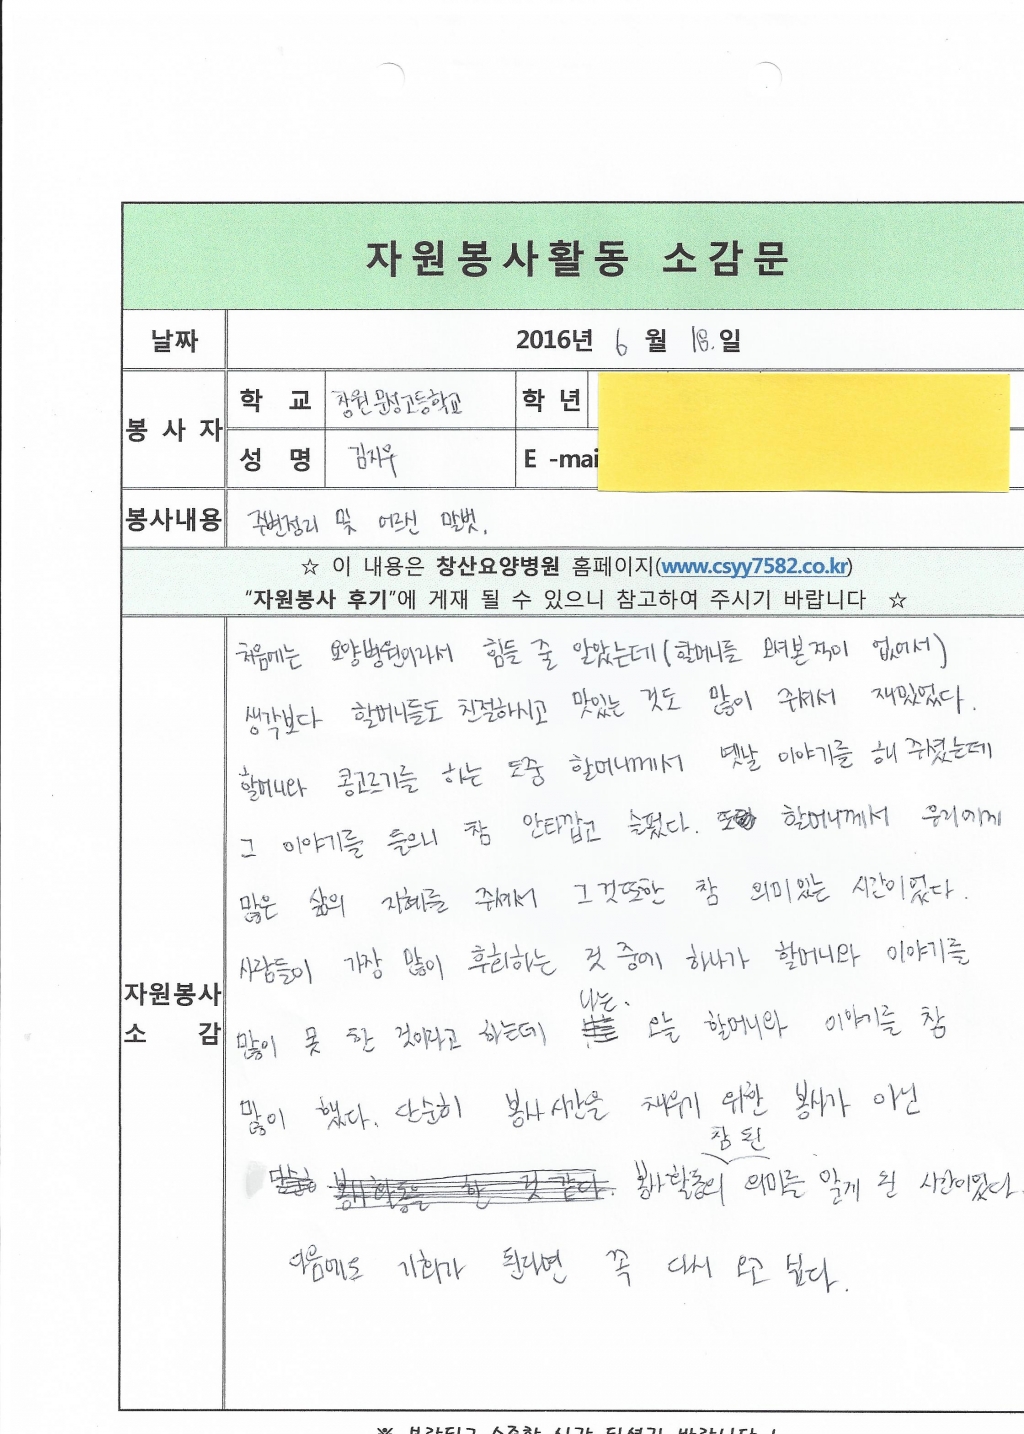 자원봉사활동 소감문
날짜 2016년 6 월 18.일
봉 사 자 학 교 창원문성고등학교 학 년
성 명 김지우 E -mai
봉사내용 주변정리 및 어르신 말벗.
☆ 이 내용은 창산요양병원 홈페이지(www.csyy7582.co.kr)
“자원봉사 후기”에 게재 될 수 있으니 참고하여 주시기 바랍니다 ☆
자원봉사
소 감
처음에는 요양병원이라서 힘들 줄 알았는데 (할머니를 모셔본적이 없어서)
생각보다 할머니들도 친절하시고 맛있는 것도 많이 주셔서 재밌었다.
할머니와 콩고르기를 하는 도중 할머니께서 옛날 이야기를 해 주셨는데
그 이야기를 들으니 참 안타깝고 슬펐다. 할머니께서 우리에게
많은 삶의 지혜를 주셔서 그것또한 참 의미있는 시간이었다.
사람들이 가장 많이 후회하는 것 중에 하나가 할머니와 이야기를
많이 못 한 것이라고 하는데 나는 오늘 할머니와 이야기를 참
많이 했다. 단순히 봉사시간을 채우기 위한 봉사가 아닌
봉사활동의 참된 의미를 알게 된 시간이었다.
다음에도 기회가 된다면 꼭 다시 오고 싶다.